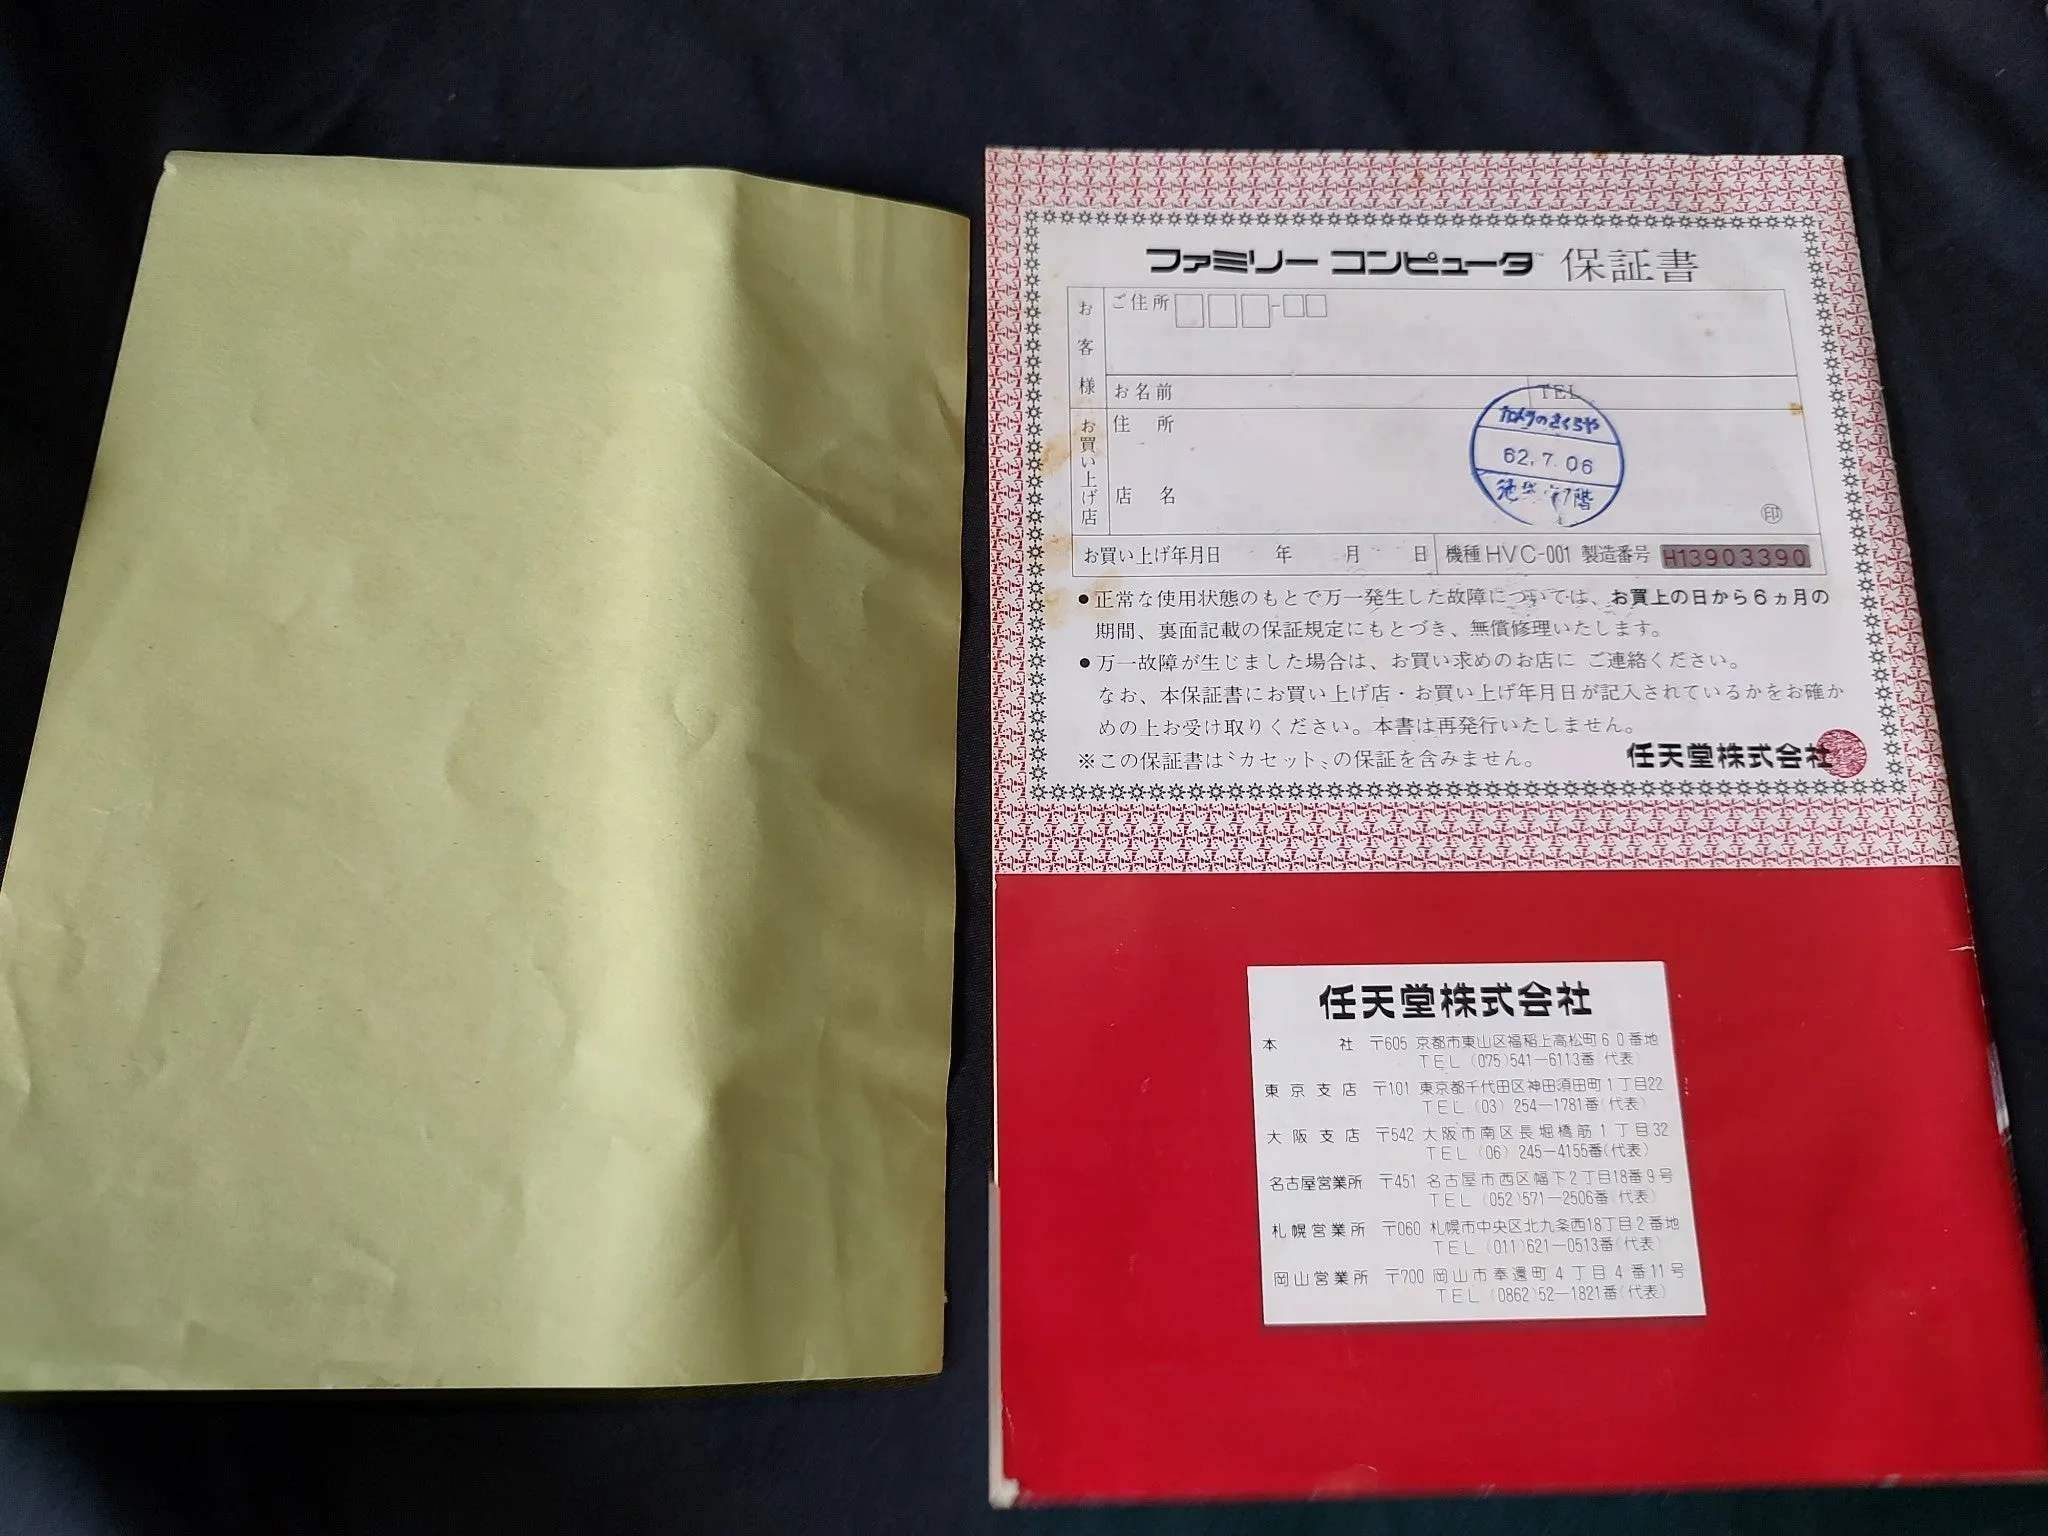 ファミリー コンピュータ™ 保証書
お客様
ご住所
お名前
TEL
お買い上げ店
住 所
カメラのさくらや
62.7.06
階
店 名
印
お買い上げ年月日 年 月 日
機種HVC-001 製造番号 H13903390
●正常な使用状態のもとで万一発生した故障については、お買上の日から6ヵ月の
期間、裏面記載の保証規定にもとづき、無償修理いたします。
●万一故障が生じました場合は、お買い求めのお店に ご連絡ください。
なお、本保証書にお買い上げ店・お買い上げ年月日が記入されているかをお確か
めの上お受け取りください。本書は再発行いたしません。
※この保証書は〝カセット〟の保証を含みません。
任天堂株式会社
任天堂株式会社
本 社 〒605 京都市東山区福稲上高松町60番地
TEL (075)541-6113番(代表)
東京支店 〒101 東京都千代田区神田須田町1丁目22
TEL (03) 254-1781番(代表)
大阪支店 〒542 大阪市南区長堀橋筋1丁目32
TEL (06) 245-4155番(代表)
名古屋営業所 〒451 名古屋市西区幅下2丁目18番9号
TEL (052)571-2506番(代表)
札幌営業所 〒060 札幌市中央区北九条西18丁目2番地
TEL (011)621-0513番(代表)
岡山営業所 〒700 岡山市奉還町4丁目4番11号
TEL (0862)52-1821番(代表)